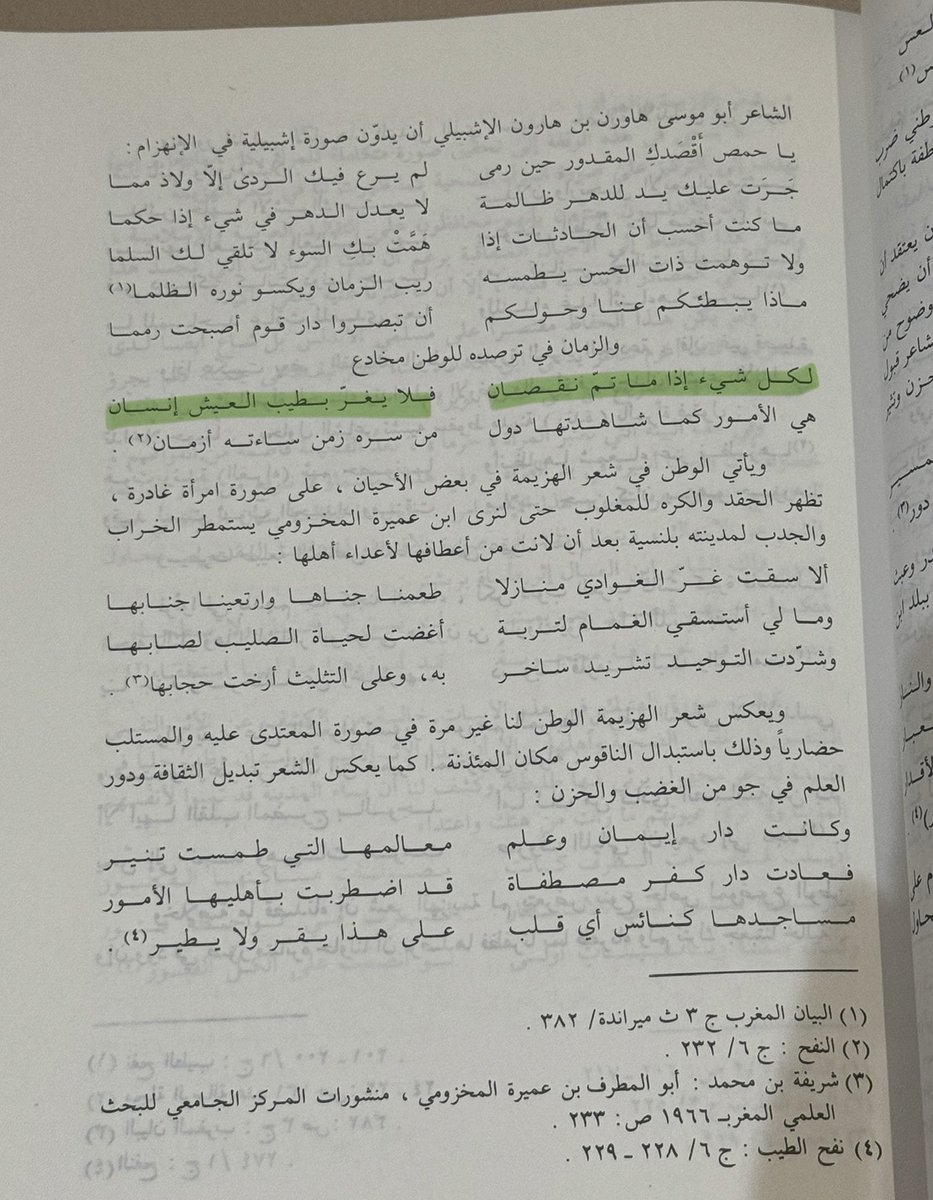 الشاعر أبو موسى هاورن بن هارون الإشبيلي أن يدوّن صورة إشبيلية في الإنهزام :
يا حمص أَقْصَدكِ المقدور حين رمى لم يرع فيك الردى إلّا ولاذ مما
جَرَت عليك يد للدهر ظالمة لا يعدل الدهر في شيء إذا حكما
ما كنت أحسب أن الحادثات إذا هَمَّتْ بكِ السوء لا تلقي لك السلما
ولا توهمت ذات الحسن يطمسه ريب الزمان ويكسو نوره الظلما(١)
ماذا يبطئكم عنا وحولكم أن تبصروا دار قوم أصبحت رمما
والزمان في ترصده للوطن مخادع
لكل شيء إذا ما تمّ نقصان فلا يغرّ بطيب العيش إنسان
هي الأمور كما شاهدتها دول من سره زمن ساءته أزمان(٢) .
ويأتي الوطن في شعر الهزيمة في بعض الأحيان ، على صورة امرأة غادرة ،
تظهر الحقد والكره للمغلوب حتى لنرى ابن عميرة المخزومي يستمطر الخراب
والجدب لمدينته بلنسية بعد أن لانت من أعطافها لأعداء أهلها :
ألا سقت غرّ الغوادي منازلا طعمنا جناها وارتعينا جنابها
وما لي أستسقي الغمام لتربة أغضت لحياة الصليب لصابها
وشرّدت التوحيد تشريد ساخر به، وعلى التثليث أرخت حجابها(٣) .
ويعكس شعر الهزيمة الوطن لنا غير مرة في صورة المعتدى عليه والمستلب
حضارياً وذلك باستبدال الناقوس مكان المئذنة . كما يعكس الشعر تبديل الثقافة ودور
العلم في جو من الغضب والحزن :
وكانت دار إيمان وعلم معالمها التي طمست تنير
فعادت دار كفر مصطفاة قد اضطربت بأهليها الأمور
مساجدها كنائس أي قلب على هذا يقر ولا يطير(٤) .
(١) البيان المغرب ج ٣ ث ميراندة/ ٣٨٢ .
(٢) النفح : ج ٦/ ٢٣٢ .
(٣) شريفة بن محمد : أبو المطرف بن عميرة المخزومي ، منشورات المركز الجامعي للبحث
العلمي المغربـ ١٩٦٦ ص: ٢٣٣ .
(٤) نفح الطيب : ج ٦/ ٢٢٨ ـ ٢٢٩ .